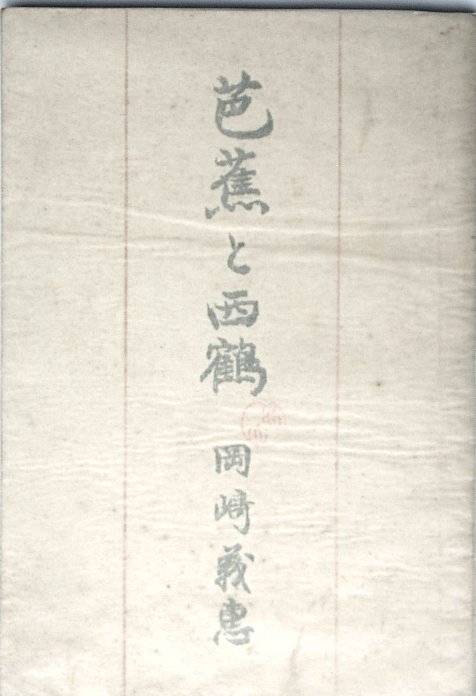 芭蕉と西鶴
岡崎義惠